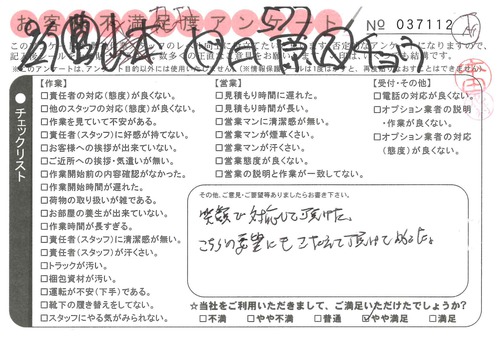 お客様不満足度アンケート
No 037112
■チェックリスト
【作業】
□責任者の対応(態度)が良くない。
□他のスタッフの対応(態度)が良くない。
□作業を見ていて不安がある。
□責任者(スタッフ)に好感が持てない。
□お客様への挨拶が出来ていない。
□ご近所への挨拶・気遣いが無い。
□作業開始前の内容確認がなかった。
□作業開始時間が遅れた。
□荷物の取り扱いが雑である。
□お部屋の養生が出来ていない。
□作業時間が長すぎる。
□責任者(スタッフ)に清潔感が無い。
□責任者(スタッフ)が汗くさい。
□トラックが汚い。
□梱包資材が汚い。
□運転が不安(下手)である。
□靴下の履き替えをしてない。
□スタッフにやる気がみられない。
【営業】
□見積もり時間に遅れた。
□見積もり時間が長い。
□営業マンに清潔感が無い。
□営業マンが煙草くさい。
□営業マンが汗くさい。
□営業態度が良くない。
□営業の説明と作業が一致してない。
【受付・その他】
□電話の対応が良くない。
□オプション業者の説明
・作業が良くない。
□オプション業者の対応
(態度)が良くない。
その他、ご意見・ご要望等ありましたらお書き下さい。
笑顔で対応して頂けた。
こちらの要望にもこたえて頂けてよかった。
☆当社をご利用いただきまして、ご満足いただけたでしょうか?
□不満 □やや不満 □普通 ☑やや満足 □満足